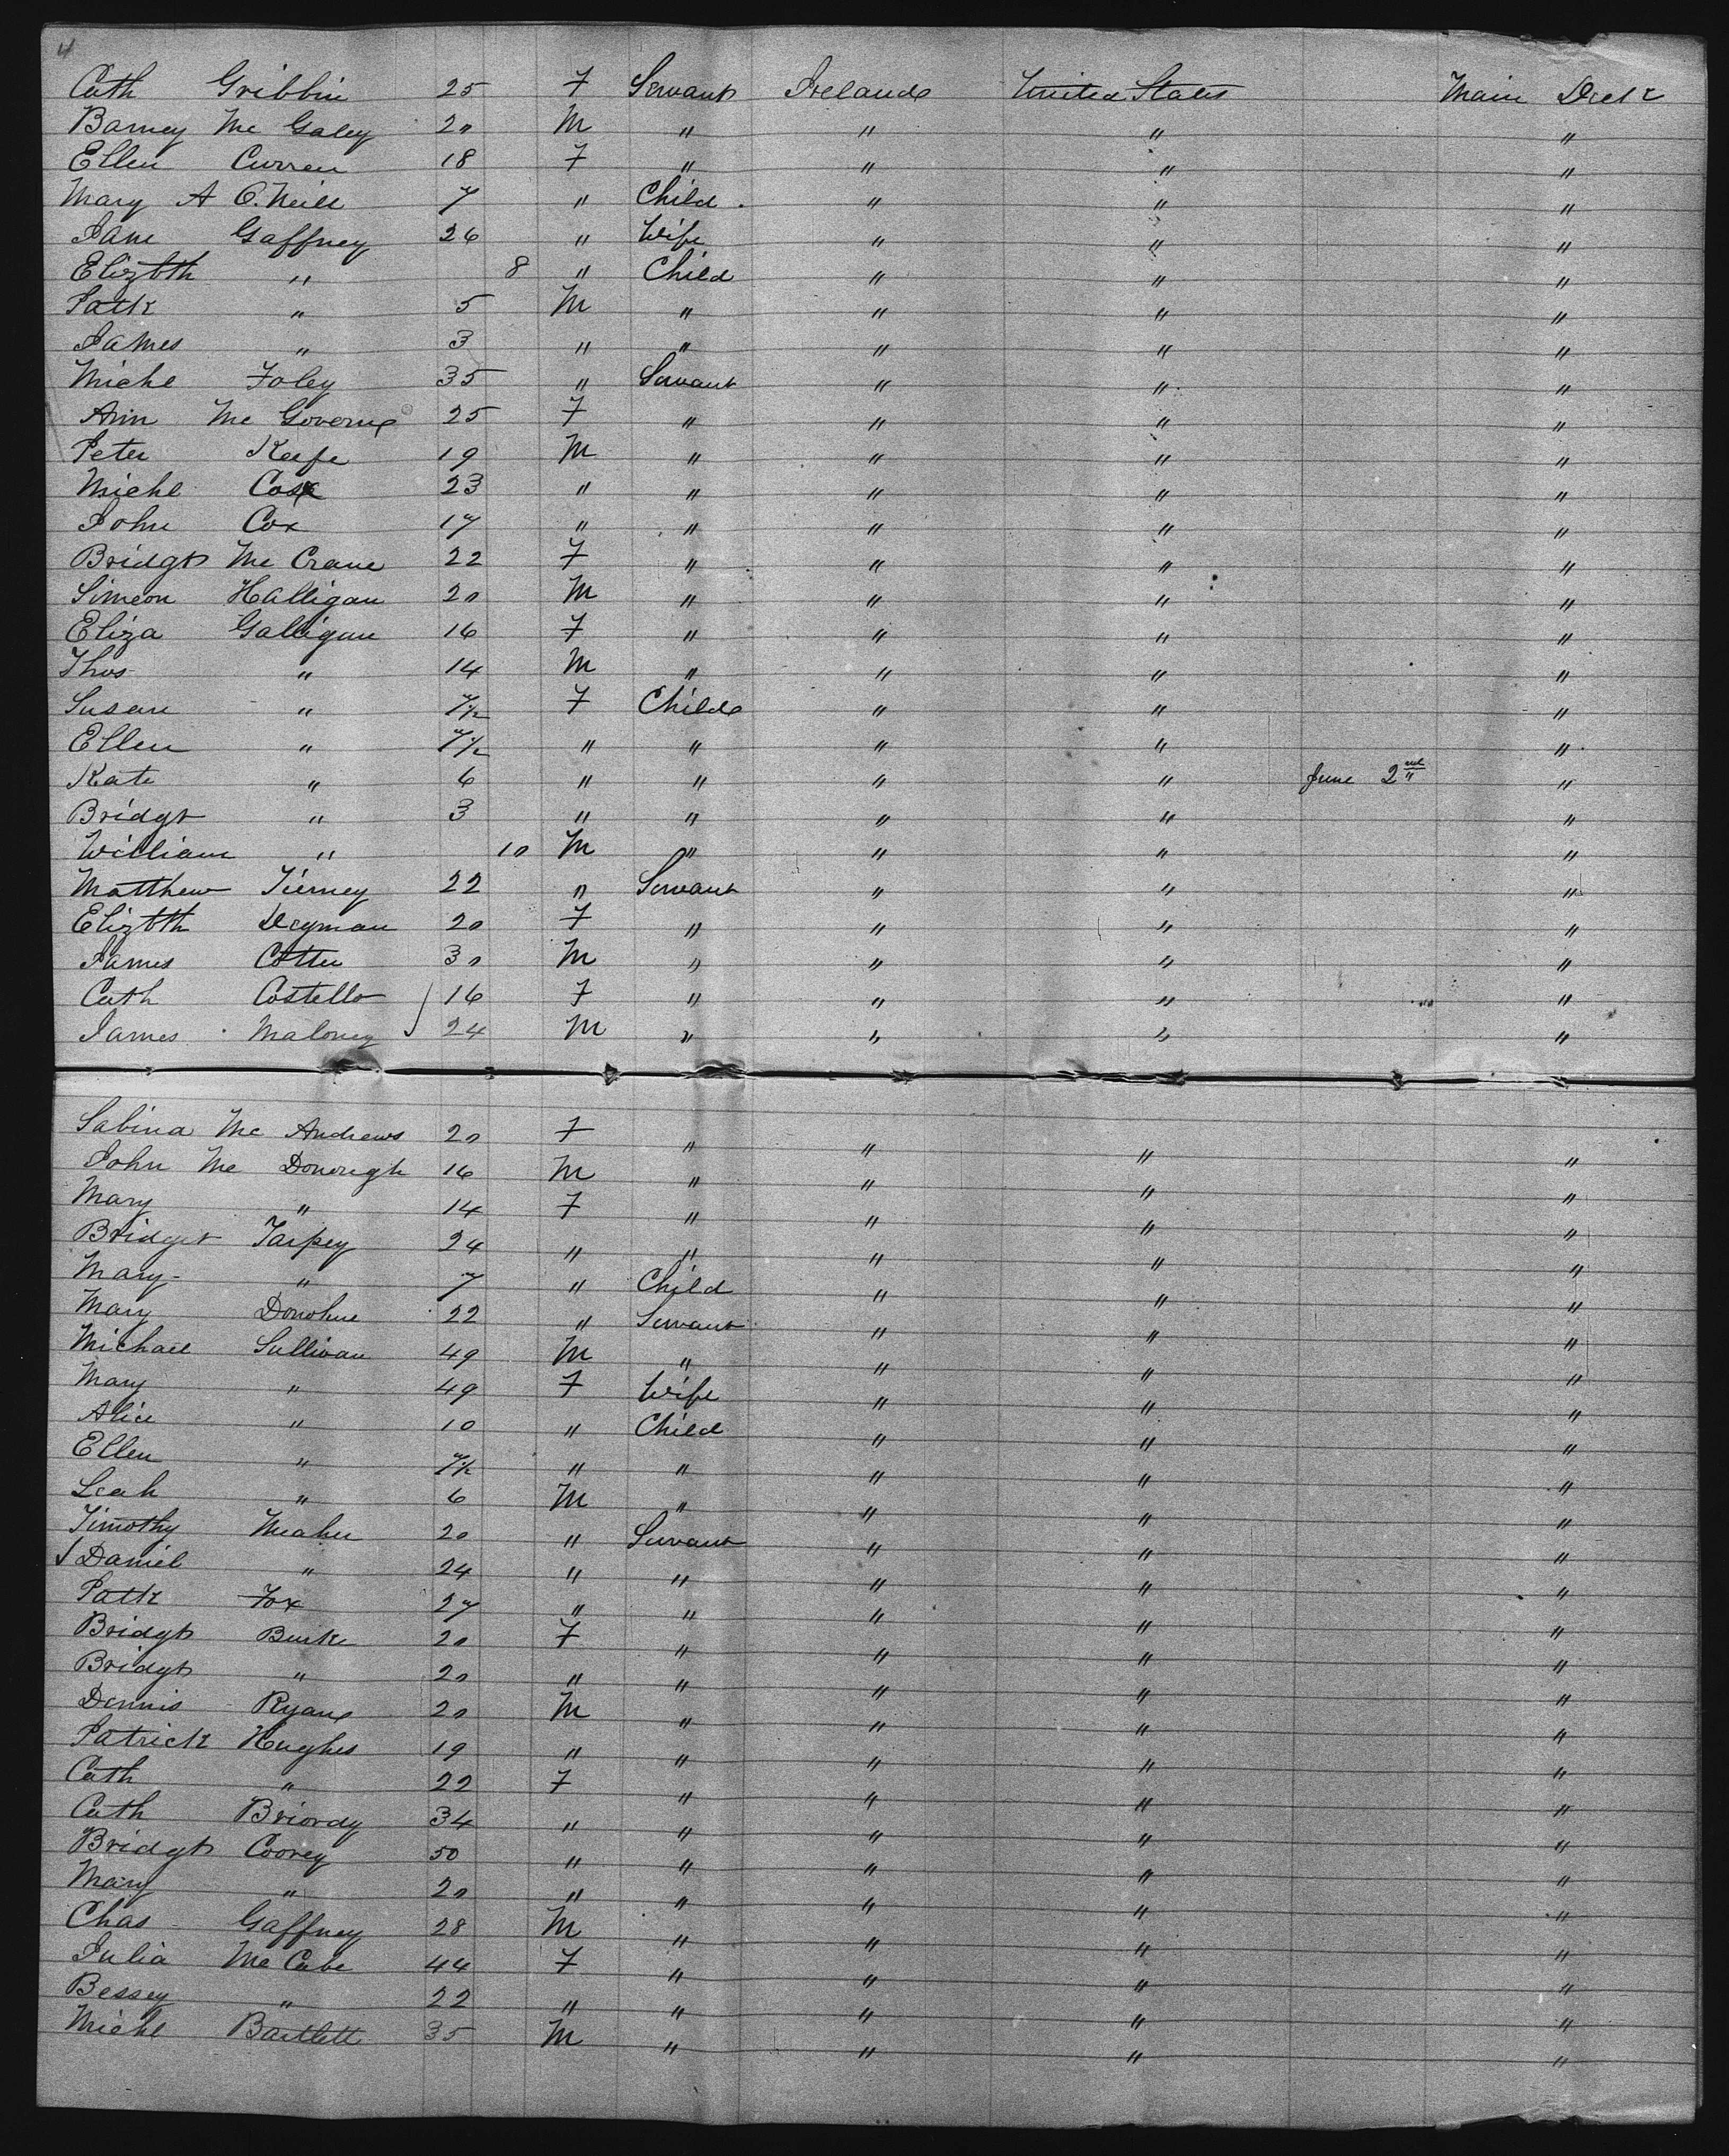 4
Cath Gribbin 25 F Servant Ireland United States Main Deck
Barney Mc Galey 20 M " " " "
Ellen Curren 18 F " " " "
Mary A O.Neill 7 " Child " " "
Jane Gaffney 26 " Wife " " "
Elizbth " 8 " Child " " "
Patk " 5 M " " " "
James " 3 " " " " "
Michl Foley 35 " Servant " " "
Ann Mc Govern 25 F " " " "
Peter Keefe 19 M " " " "
Michl Cox 23 " " " " "
John Cox 17 " " " " "
Bridgt Mc Crane 22 F " " " "
Simeon Halligan 20 M " " " "
Eliza Galligan 16 F " " " "
Thos " 14 M " " " "
Susan " 7½ F Child " " "
Ellen " 7½ " " " " "
Kate " 6 " " " " June 2nd "
Bridgt " 3 " " " " "
William " 10 M " " " "
Matthew Tierney 22 " Servant " " "
Elizbth 20 F " " " "
James Cotter 30 M " " " "
Cath Costello 16 F " " " "
James Maloney 24 M " " " "
Sabina Mc Andrews 20 F " " " "
John Mc Donough 16 M " " " "
Mary " 14 F " " " "
Bridget Tarpey 24 " " " " "
Mary " 7 " Child " " "
Mary Donohue 22 " Servant " " "
Michael Sullivan 49 M " " " "
Mary " 49 F Wife " " "
Alice " 10 " Child " " "
Ellen " 7½ " " " " "
Leah " 6 M " " " "
Timothy Meaher 20 " Servant " " "
Daniel " 24 " " " " "
Patk Fox 27 " " " " "
Bridgt Burke 20 F " " " "
Bridgt " 20 " " " " "
Dennis Ryan 20 M " " " "
Patrick Hughes 19 " " " " "
Cath " 22 F " " " "
Cath Briordy 34 " " " " "
Bridgt Coorey 50 " " " " "
Mary " 20 " " " " "
Chas Gaffney 28 M " " " "
Julia Mc Cabe 44 F " " " "
Bessey " 22 " " " " "
Michl Bartlett 35 M " " " "